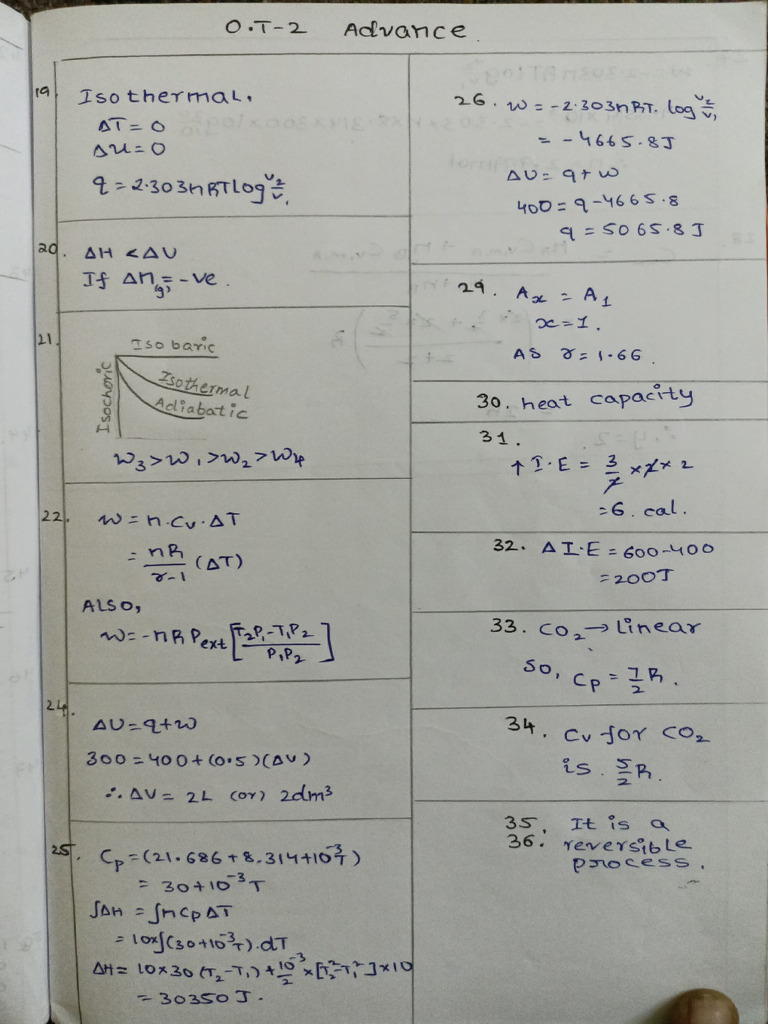 O.T-2 Advance.
19. Isothermal.
ΔT = 0
ΔU = 0
q = 2.303nRTlog V₂/V₁
20. ΔH < ΔU
If Δn(g) = -ve.
21.
Isobaric
Isochoric
Isothermal
Adiabatic
W₃ > W₁ > W₂ > W₄
22. W = n.Cv.ΔT
= nR/γ-1 (ΔT)
ALSO,
W = -nR Pext [T₂P₁-T₁P₂/P₁P₂]
24.
ΔU = q+w
300 = 400+(0.5)(ΔV)
∴ ΔV = 2L (or) 2dm³
25. Cp = (21.686+8.314+10⁻³T)
= 30+10⁻³T
∫ΔH = ∫nCpΔT
= 10x∫(30+10⁻³T).dT
ΔH = 10x30 (T₂-T₁) + 10⁻³/2 x[T₂²-T₁²]x10
= 30350J.
26. W = -2.303nRT. log V₂/V₁
= -4665.8J
ΔU = q+w
400 = q-4665.8
q = 5065.8J
29. Ax = A1
x=1.
As γ = 1.66.
30. heat capacity
31.
↑ I.E = 3/2 x2x2
= 6. cal.
32. Δ I.E = 600-400
= 200J
33. CO₂ → Linear
so, Cp = 7/2 R.
34. Cv for CO₂
is. 5/2 R.
35. It is a
36. reversible
process.